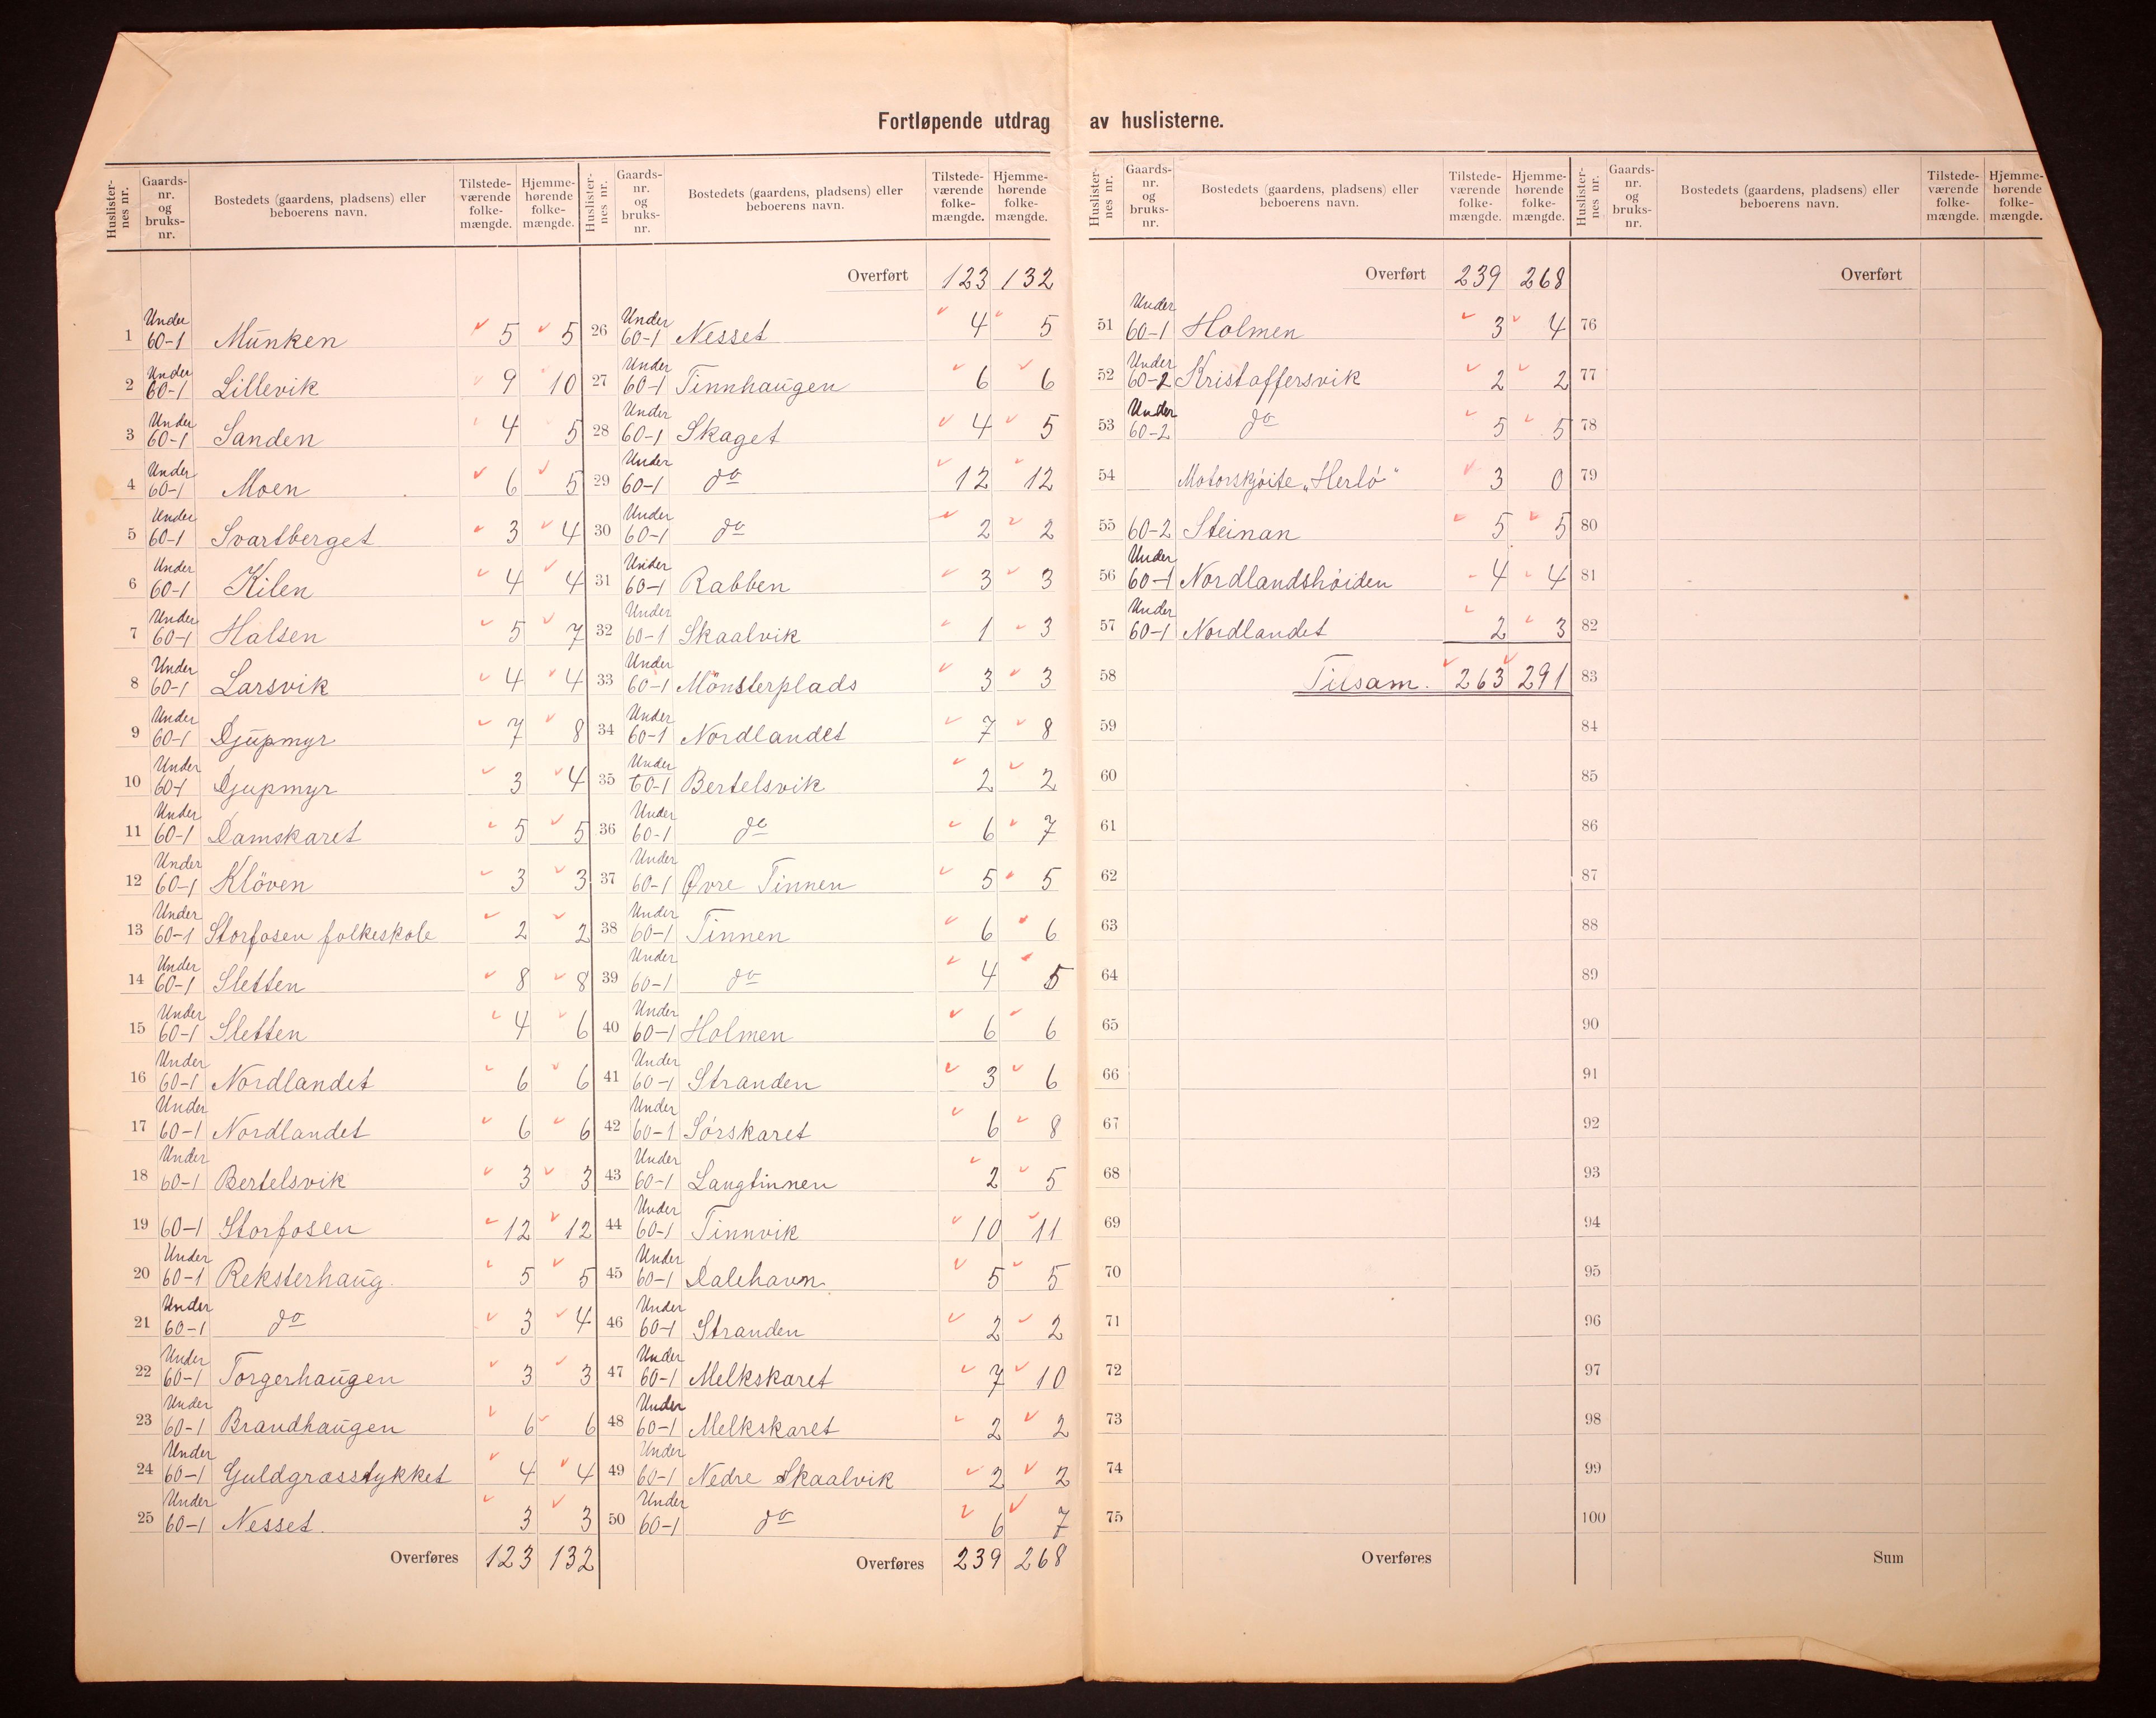 Fortløpende utdrag av huslisterne.
Huslister-nes nr. Gaards-nr. og bruks-nr. Bostedets (gaardens, pladsens) eller beboerens navn. Tilstede-værende folke-mængde. Hjemme-hørende folke-mængde.
1 Under 60-1 Munken 5 5
2 Under 60-1 Lillevik 9 10
3 Under 60-1 Sanden 4 5
4 Under 60-1 Moen 6 5
5 Under 60-1 Svartberget 3 4
6 Under 60-1 Kilen 4 4
7 Under 60-1 Halsen 5 7
8 Under 60-1 Larsvik 4 4
9 Under 60-1 Djupmyr 7 8
10 Under 60-1 Djupmyr 3 4
11 Under 60-1 Damskaret 5 5
12 Under 60-1 Klöven 3 3
13 Under 60-1 Storfosen folkeskole 2 2
14 Under 60-1 Sletten 8 8
15 Under 60-1 Sletten 4 6
16 Under 60-1 Nordlandet 6 6
17 Under 60-1 Nordlandet 6 6
18 Under 60-1 Bertelsvik 3 3
19 60-1 Storfosen 12 12
20 Under 60-1 Reksterhaug. 5 5
21 Under 60-1 do 3 4
22 Under 60-1 Torgerhaugen 3 3
23 Under 60-1 Brandhaugen 6 6
24 Under 60-1 Guldgrasstykket 4 4
25 Under 60-1 Nesset. 3 3
Overføres 123 132
Huslister-nes nr. Gaards-nr. og bruks-nr. Bostedets (gaardens, pladsens) eller beboerens navn. Tilstede-værende folke-mængde. Hjemme-hørende folke-mængde.
Overført 123 132
26 Under 60-1 Nesset 4 5
27 Under 60-1 Tinnhaugen 6 6
28 Under 60-1 Skaget 4 5
29 Under 60-1 do 12 12
30 Under 60-1 do 2 2
31 Under 60-1 Rabben 3 3
32 Under 60-1 Skaalvik 1 3
33 Under 60-1 Mönsterplads 3 3
34 Under 60-1 Nordlandet 7 8
35 Under 60-1 Bertelsvik 2 2
36 Under 60-1 do 6 7
37 Under 60-1 Øvre Tinnen 5 5
38 Under 60-1 Tinnen 6 6
39 Under 60-1 do 4 5
40 Under 60-1 Holmen 6 6
41 Under 60-1 Stranden 3 6
42 Under 60-1 Sörskaret 6 8
43 Under 60-1 Langtinnen 2 5
44 Under 60-1 Tinnvik 10 11
45 Under 60-1 Dalehavn 5 5
46 Under 60-1 Stranden 2 2
47 Under 60-1 Melkskaret 7 10
48 Under 60-1 Melkskaret 2 2
49 Under 60-1 Nedre Skaalvik 2 2
50 Under 60-1 do 6 7
Overføres 239 268
Huslister-nes nr. Gaards-nr. og bruks-nr. Bostedets (gaardens, pladsens) eller beboerens navn. Tilstede-værende folke-mængde. Hjemme-hørende folke-mængde.
Overført 239 268
51 Under 60-1 Holmen 3 4
52 Under 60-2 Kristoffersvik 2 2
53 Under 60-2 do 5 5
54 Motorskjöite „Herlö" 3 0
55 60-2 Steinan 5 5
56 Under 60-1 Nordlandshöiden 4 4
57 Under 60-1 Nordlandet 2 3
58 Tilsam. 263 291
59
60
61
62
63
64
65
66
67
68
69
70
71
72
73
74
75
Overføres
Huslister-nes nr. Gaards-nr. og bruks-nr. Bostedets (gaardens, pladsens) eller beboerens navn. Tilstede-værende folke-mængde. Hjemme-hørende folke-mængde.
Overført
76
77
78
79
80
81
82
83
84
85
86
87
88
89
90
91
92
93
94
95
96
97
98
99
100
Sum